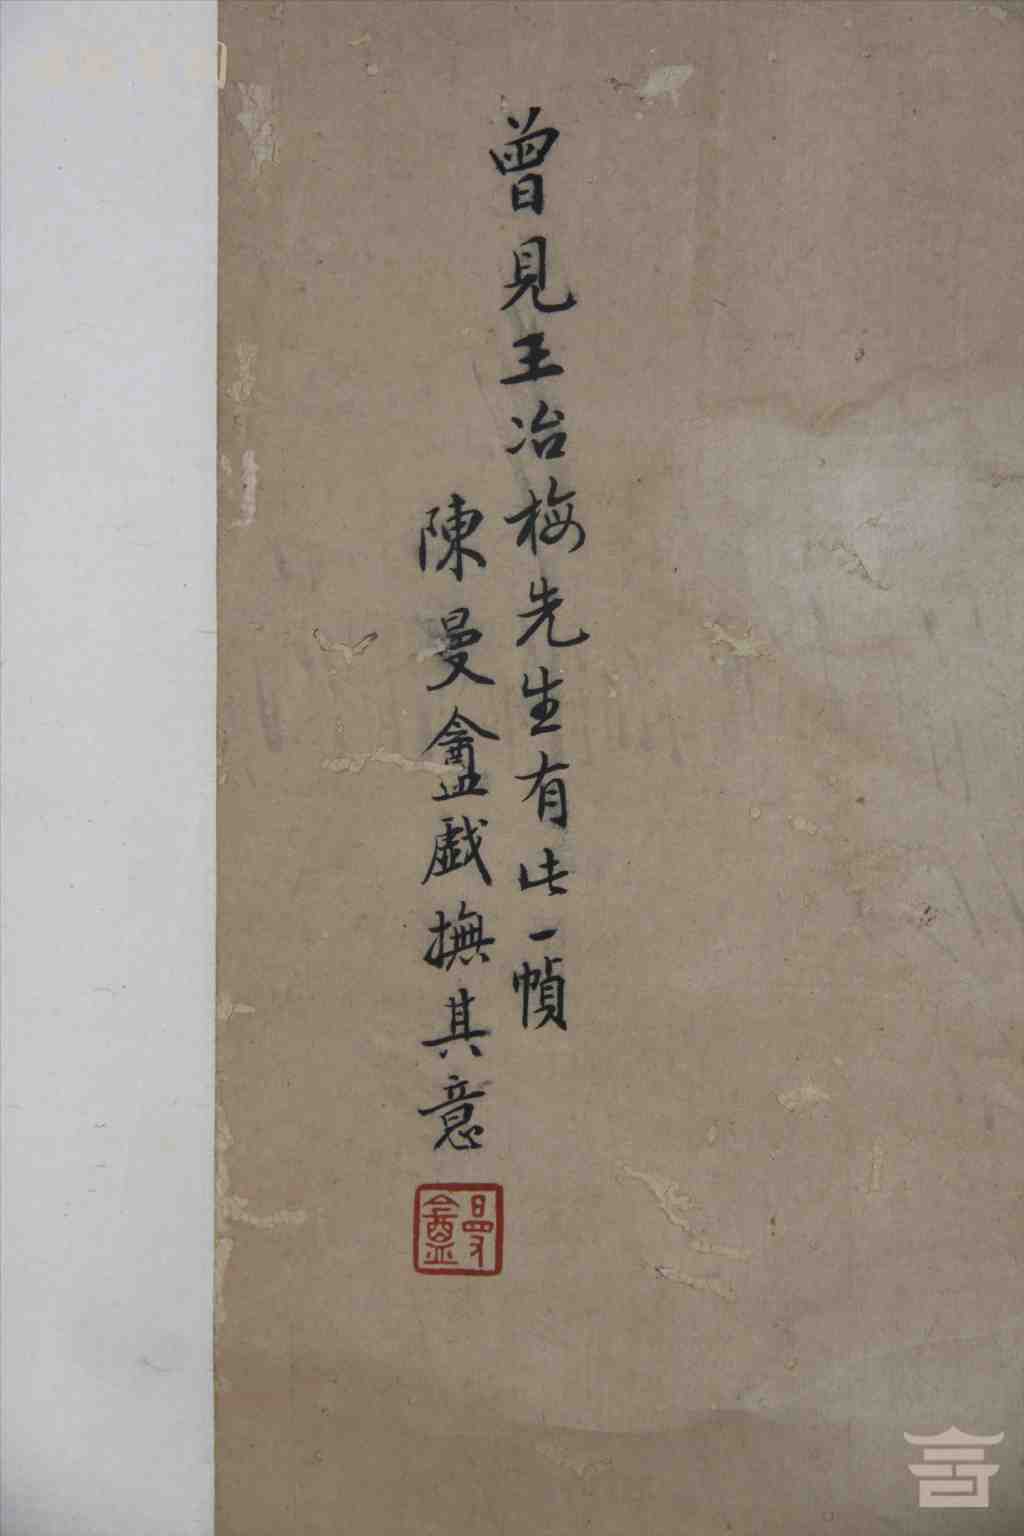 曾見王冶梅先生有此一幀
陳曼盦戯撫其意
曼盦